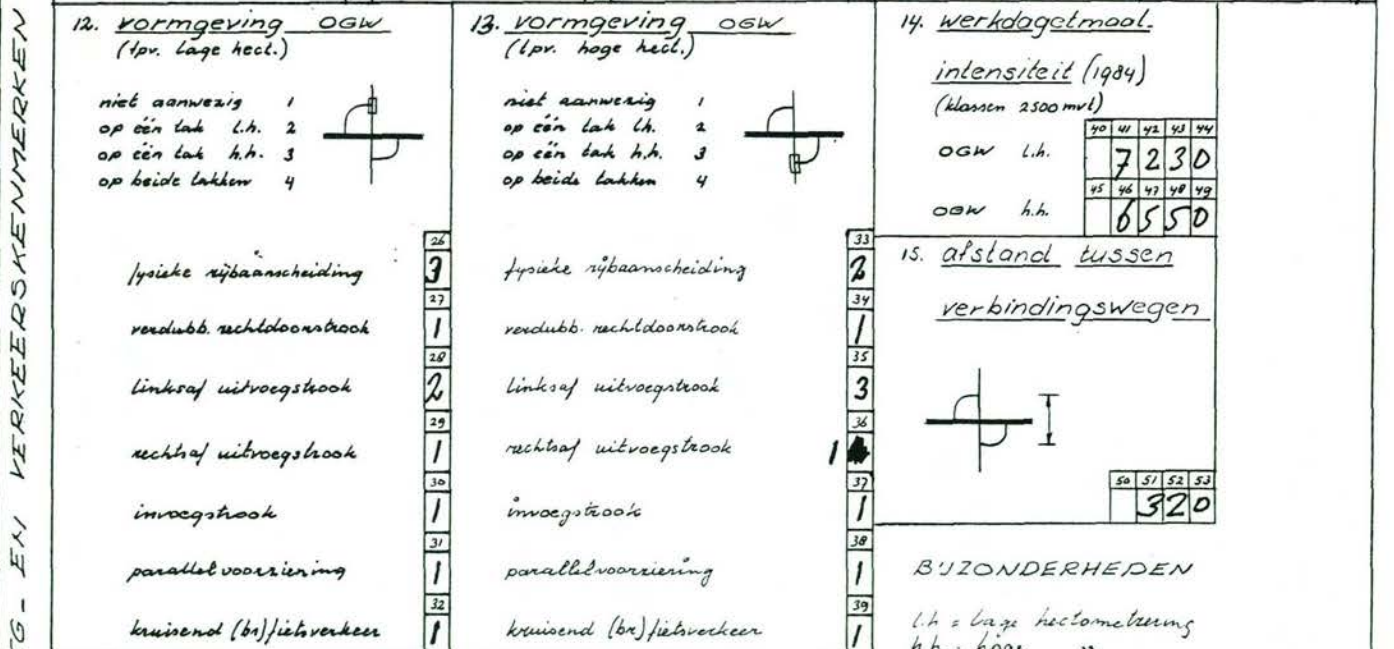 WEG- EN VERKEERSKENMERKEN
12. vormgeving OGW
(tpv. lage hect.)
niet aanwezig 1
op één tak l.h. 2
op één tak h.h. 3
op beide takken 4
26
fysieke rijbaanscheiding 3
27
verdubb. rechtdoorstrook 1
28
linksaf uitvoegstrook 2
29
rechtsaf uitvoegstrook 1
30
invoegstrook 1
31
parallelvoorziening 1
32
kruisend (br)fietsverkeer 1
13. vormgeving OGW
(tpv. hoge hect.)
niet aanwezig 1
op één tak l.h. 2
op één tak h.h. 3
op beide takken 4
33
fysieke rijbaanscheiding 2
34
verdubb. rechtdoorstrook 1
35
linksaf uitvoegstrook 3
36
rechtsaf uitvoegstrook 1
37
invoegstrook 1
38
parallelvoorziening 1
39
kruisend (br)fietsverkeer 1
14. werkdagetmaal-
intensiteit (1984)
(klassen 2500 mvt)
40 41 42 43 44
OGW l.h. 7230
45 46 47 48 49
OGW h.h. 6550
15. afstand tussen
verbindingswegen
50 51 52 53
320
BIJZONDERHEDEN
l.h = lage hectometrering
h.h = hoge "